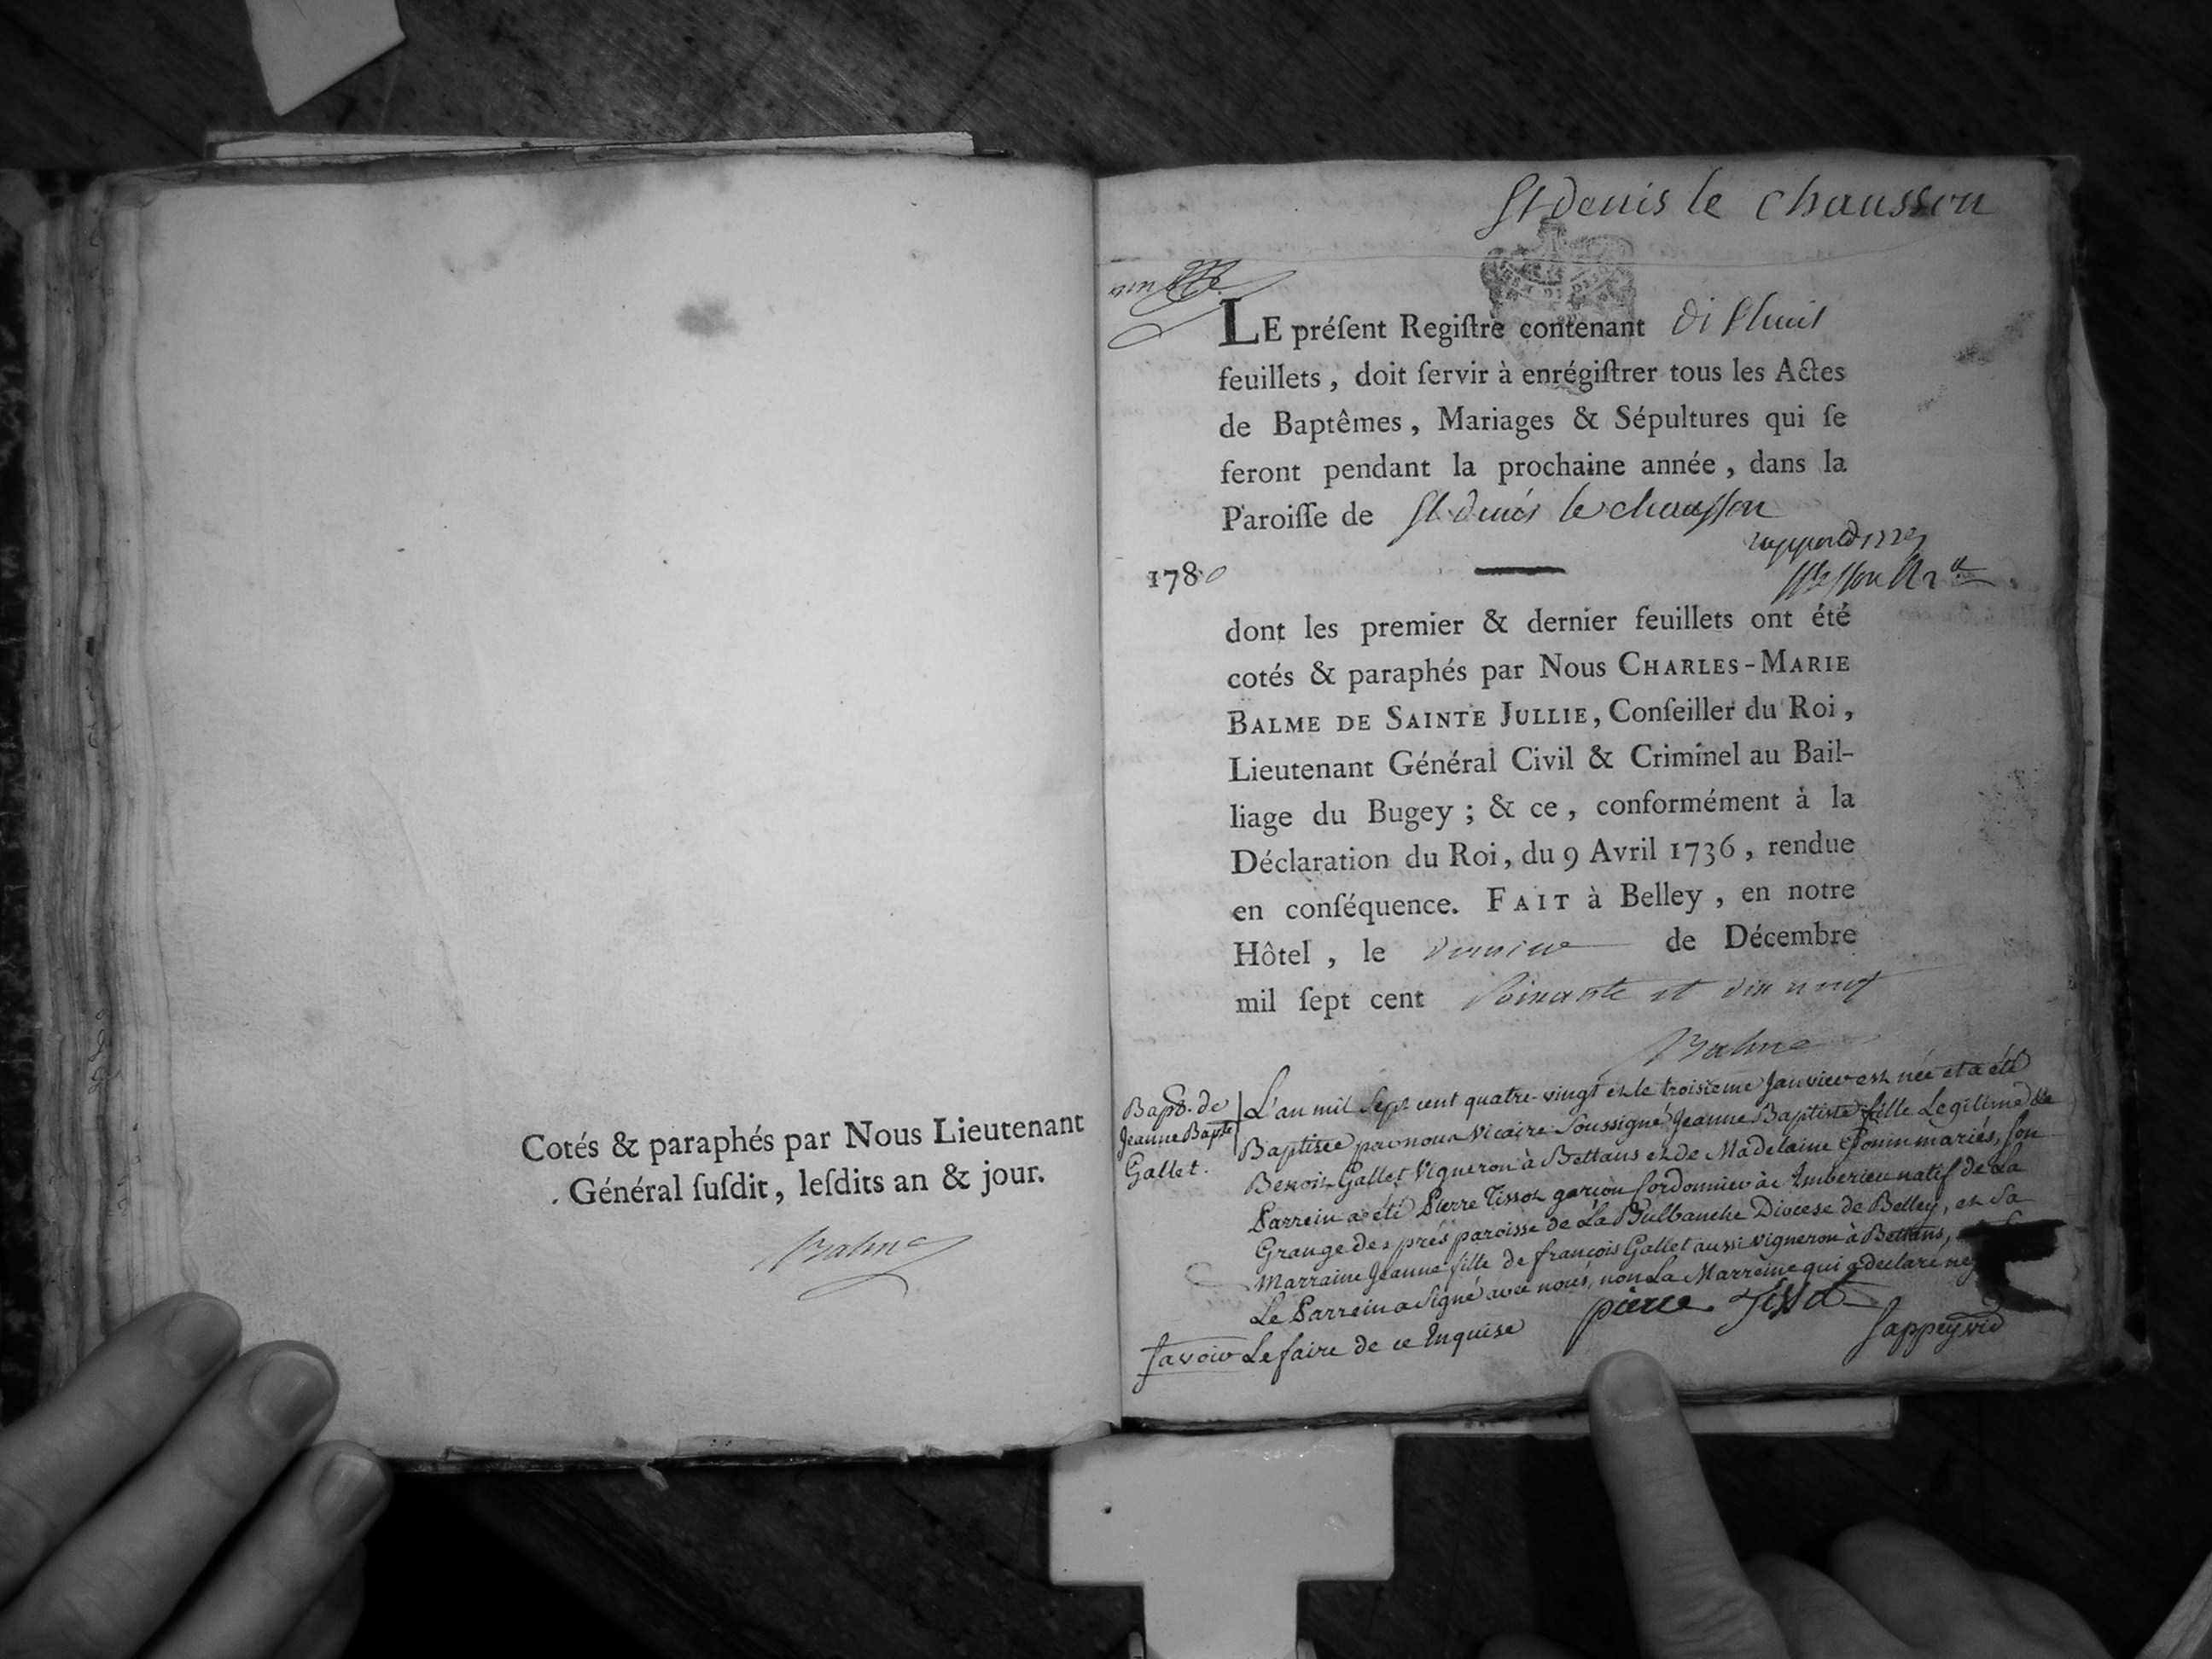 Cotés & paraphés par Nous Lieutenant
Général ſuſdit, leſdits an & jour.
Balme
St Denis le chausson
LE préſent Regiſtre contenant
feuillets, doit ſervir à enrégiſtrer tous les Actes
de Baptêmes, Mariages & Sépultures qui ſe
feront pendant la prochaine année, dans la
Paroiſſe de St denis le chausson
1780
dont les premier & dernier feuillets ont été
cotés & paraphés par Nous CHARLES-MARIE
BALME DE SAINTE JULLIE, Conſeiller du Roi,
Lieutenant Général Civil & Criminel au Bail-
liage du Bugey; & ce, conformément à la
Déclaration du Roi, du 9 Avril 1736, rendue
en conſéquence. FAIT à Belley, en notre
Hôtel, le de Décembre
mil ſept cent soixante et dix neuf
Balme
Bapt. de
Jeanne Bapte
Gallet.
L'an mil Sept cent quatre-vingt et le troisieme Janvier est née et a été
Baptisée par nous Vicaire Soussigné Jeanne Baptiste fille Legitime de
Benoit Gallet Vigneron à Bettans et de Madelaine mariés, Son
Parrein a été Pierre Tissot garçon Cordonnier à Amberieu natif de La
Grange des prés paroisse de La Diocese de Belley, et Sa
Marraine Jeanne fille de françois Gallet aussi vigneron à Bettans,
Le Parrein a Signé avec nous, non La Marreine qui a declaré ne
Savoir Le faire de ce Enquise
pierre Tissot
Sappey vic